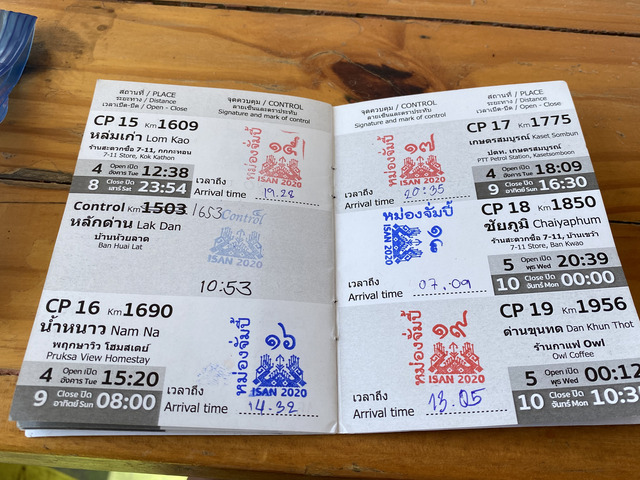 สถานที่ / PLACE
ระยะทาง / Distance
เวลาเปิด-ปิด / Open - Close
จุดควบคุม / CONTROL
ลายเซ็นและตราประทับ
Signature and mark of control
CP 15 Km 1609
หล่มเก่า Lom Kao
ร้านสะดวกซื้อ 7-11, กกกะทอน
7-11 Store, Kok Kathon
4 Open เปิด อังคาร Tue 12:38
8 Close ปิด เสาร์ Sat 23:54
หม่องจั้มปี้ ๑๕
ISAN 2020
เวลาถึง
Arrival time 19.28
Control Km 1503 1653 Control
หลักด่าน Lak Dan
บ้านห้วยลาด
Ban Huai Lat
ISAN 2020
10:53
CP 16 Km 1690
น้ำหนาว Nam Na
พฤกษาวิว โฮมสเตย์
Pruksa View Homestay
4 Open เปิด อังคาร Tue 15:20
9 Close ปิด อาทิตย์ Sun 08:00
หม่องจั้มปี้ ๑๖
ISAN 2020
เวลาถึง
Arrival time 14.32
จุดควบคุม / CONTROL
ลายเซ็นและตราประทับ
Signature and mark of control
สถานที่ / PLACE
ระยะทาง / Distance
เวลาเปิด-ปิด / Open - Close
หม่องจั้มปี้ ๑๗
ISAN 2020
เวลาถึง
Arrival time 20:35
CP 17 Km 1775
เกษตรสมบูรณ์ Kaset Sombun
ปตท. เกษตรสมบูรณ์
PTT Petrol Station, Kasetsomboon
4 Open เปิด อังคาร Tue 18:09
9 Close ปิด อาทิตย์ Sun 16:30
หม่องจั้มปี้
ISAN 2020
เวลาถึง
Arrival time 07.09
CP 18 Km 1850
ชัยภูมิ Chaiyaphum
ร้านสะดวกซื้อ 7-11, บ้านเขว้า
7-11 Store, Ban Kwao
5 Open เปิด พุธ Wed 20:39
10 Close ปิด จันทร์ Mon 00:00
หม่องจั้มปี้ ๑๙
ISAN 2020
เวลาถึง
Arrival time 13.05
CP 19 Km 1956
ด่านขุนทด Dan Khun Thot
ร้านกาแฟ Owl
Owl Coffee
5 Open เปิด พุธ Wed 00:12
10 Close ปิด จันทร์ Mon 10:3